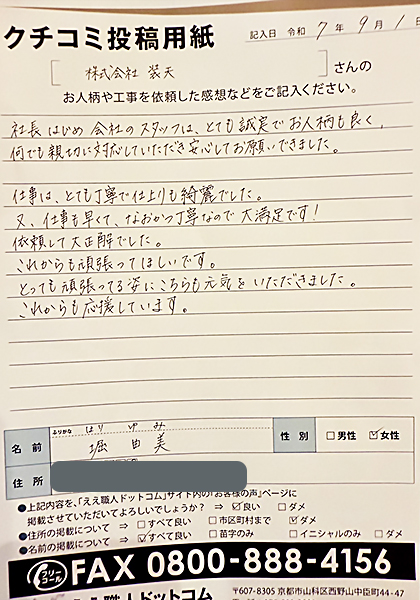 クチコミ投稿用紙
記入日 令和 7 年 9 月 1 日
[ 株式会社 装天 ] さんの
お人柄や工事を依頼した感想などをご記入ください。
社長はじめ会社のスタッフは、とても誠実でお人柄も良く、
何でも親切に対応していただき安心してお願いできました。
仕事は、とても丁寧で仕上りも綺麗でした。
又、仕事も早くて、なおかつ丁寧なので大満足です!
依頼して大正解でした。
これからも頑張ってほしいです。
とっても頑張ってる姿にこちらも元気をいただきました。
これからも応援しています。
ふりがな はり ゆみ
名前 堀 由美
性別 □男性 ☑女性
住所
●上記内容を、「ええ職人ドットコム」サイト内の「お客様の声」ページに
掲載させていただいてよろしいでしょうか? ⇒ ☑良い □ダメ
●住所の掲載について ⇒ □すべて良い □市区町村まで ☑ダメ
●名前の掲載について ⇒ ☑すべて良い □苗字のみ □イニシャルのみ □ダメ
フリーコール FAX 0800-888-4156
ええ職人ドットコム 〒607-8305 京都市山科区西野山中臣町44-47